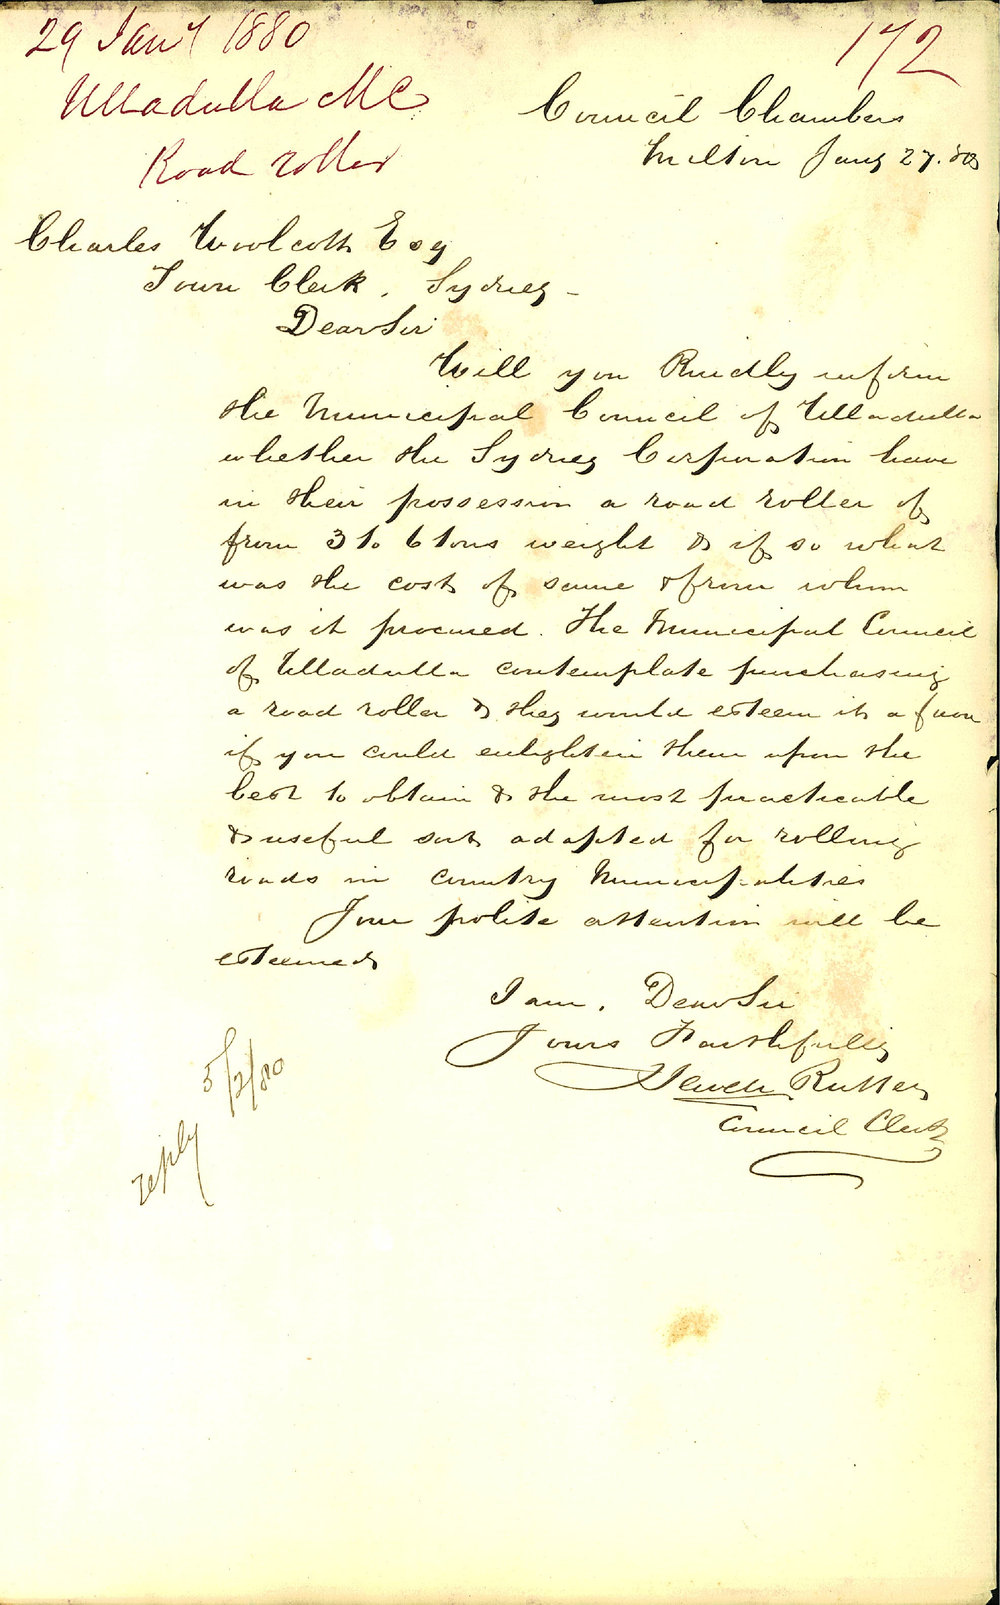 29 Jany 1880
172
Ulladulla MC
Road roller
Council Chambers
Milton Jany 27. 80
Charles Woolcott Esq
Town Clerk, Sydney -
Dear Sir
Will you Kindly inform
the Municipal Council of Ulladulla
whether the Sydney Corporation have
in their possession a road roller of
from 3 to 6 tons weight & if so what
was the cost of same & from whom
was it procured. The Municipal Council
of Ulladulla contemplate purchasing
a road roller & they would esteem it a favor
if you could enlighten them upon the
best to obtain & the most practicable
& useful sort adapted for rolling
roads in country Municipalities
Your polite attention will be
esteemed
I am, Dear Sir
Yours Faithfully
Rutter
Council Clerk
reply 5/2/80